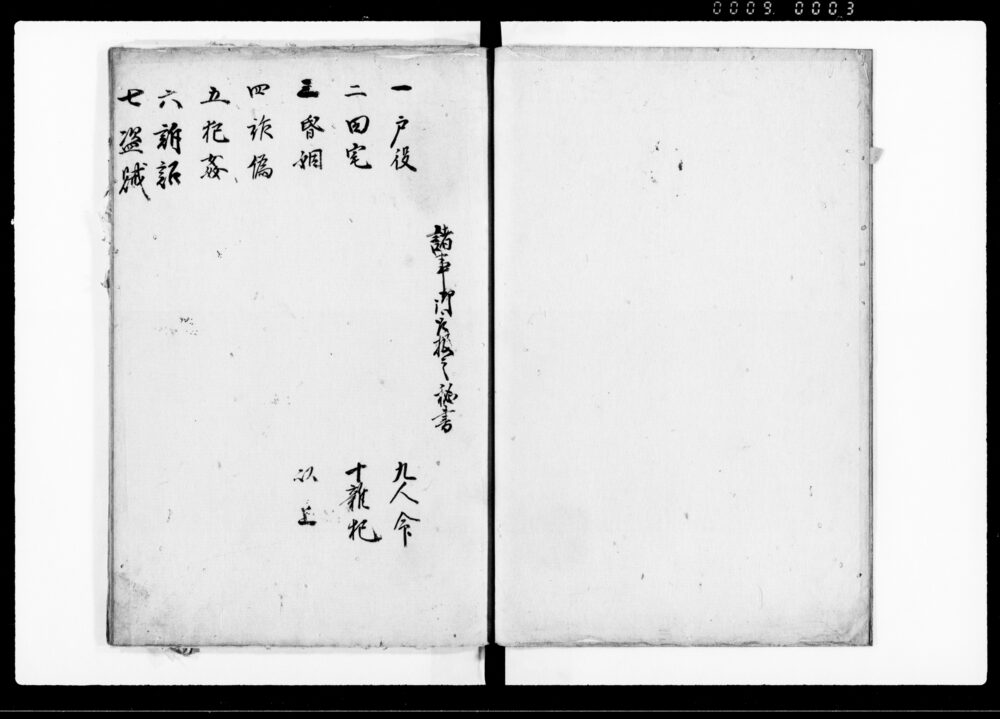 0009 0003
諸事御定掟之秘書
一 戸役
二 田宅
三 昏姻
四 詐偽
五 犯姦
六 訴訟
七 盗賊
九 人命
十 雑犯
以上